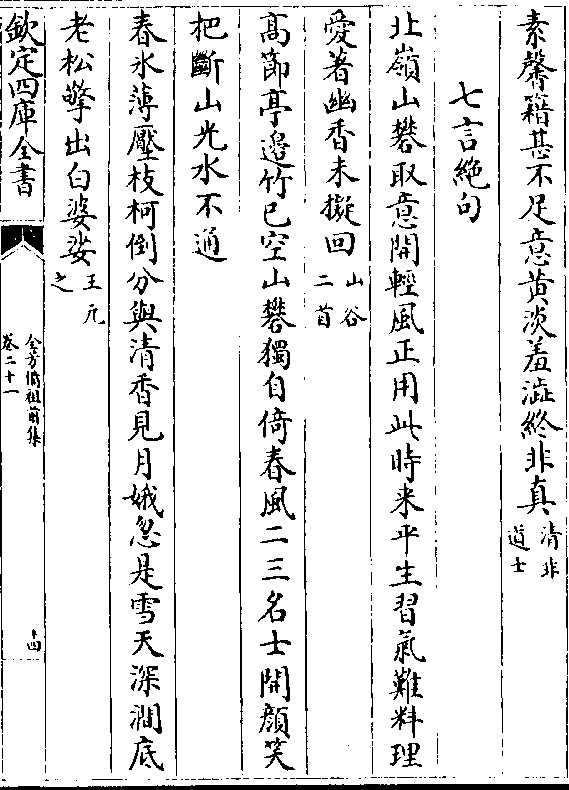 素馨籍甚不足意黄淡羞澁終非真清非
道士
七言絶句
北嶺山礬取意開輕風正用此時来平生習氣難料理
愛著幽香未擬回山谷
二首
高節亭邉竹已空山礬獨自倚春風二三名士開顔笑
把斷山光水不通
春氷薄壓枝柯倒分與清香見月娥忽是雪天深澗底
老松擎出白婆娑王元
之
欽定四庫全書
全芳備祖前集
卷二十一
十四